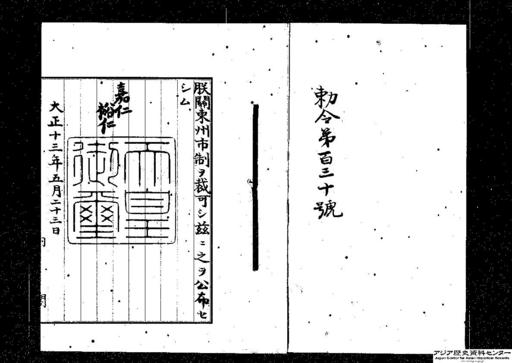 勅令第百三十號
朕關東州市制ヲ裁可シ玆ニ之ヲ公布セ
シム
嘉仁
裕仁
天皇
御璽
大正十三年五月二十三日
内閣
アジア歴史資料センター
Japan Center for Asian Historical Records